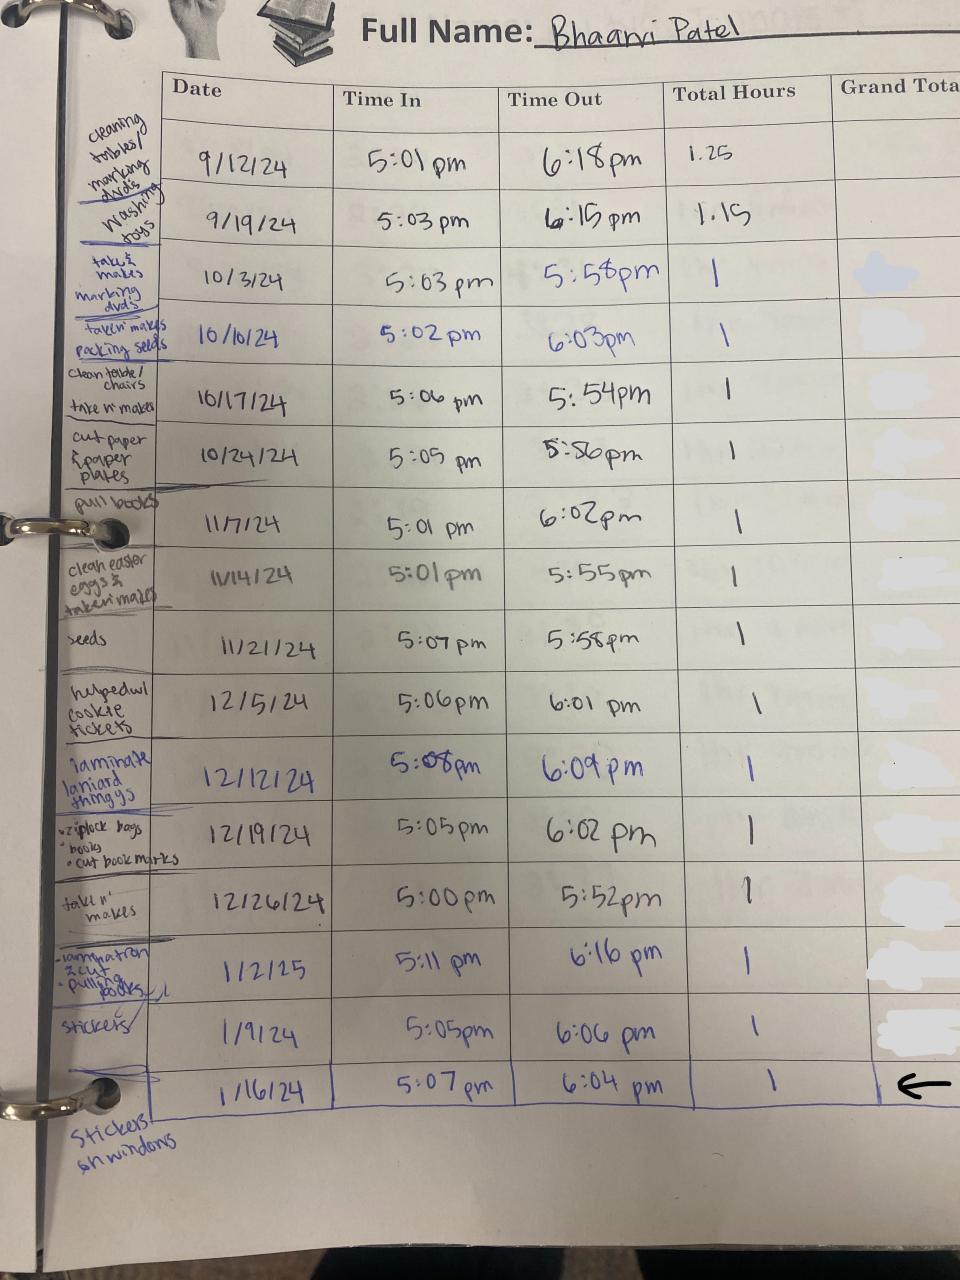 Full Name: Bhaanvi Patel
Date Time In Time Out Total Hours Grand Tota
cleaning
tables/
marking
dvds
9/12/24 5:01 pm 6:18pm 1.25
washing
toys
9/19/24 5:03 pm 6:15 pm 1.15
take &
makes
marking
dvds
10/3/24 5:03 pm 5:58pm 1
take n' makes
packing seeds
10/10/24 5:02 pm 6:03pm 1
clean table/
chairs
take n' makes
10/17/24 5:06 pm 5:54pm 1
cut paper
& paper
plates
10/24/24 5:05 pm 5:56pm 1
pull books
11/7/24 5:01 pm 6:02pm 1
clean easter
eggs &
take n' makes
11/14/24 5:01pm 5:55pm 1
seeds
11/21/24 5:07pm 5:58pm 1
helped w/
cookie
tickets
12/5/24 5:06pm 6:01 pm 1
laminate
laniard
thingys
12/12/24 5:08pm 6:09pm 1
• ziplock bags
• books
• cut book marks
12/19/24 5:05pm 6:02 pm 1
take n'
makes
12/26/24 5:00pm 5:52pm 1
& cut
• pulling
books
1/2/25 5:11 pm 6:16 pm 1
stickers
1/9/24 5:05pm 6:06 pm 1
1/16/24 5:07 pm 6:04 pm 1
stickers
on windows